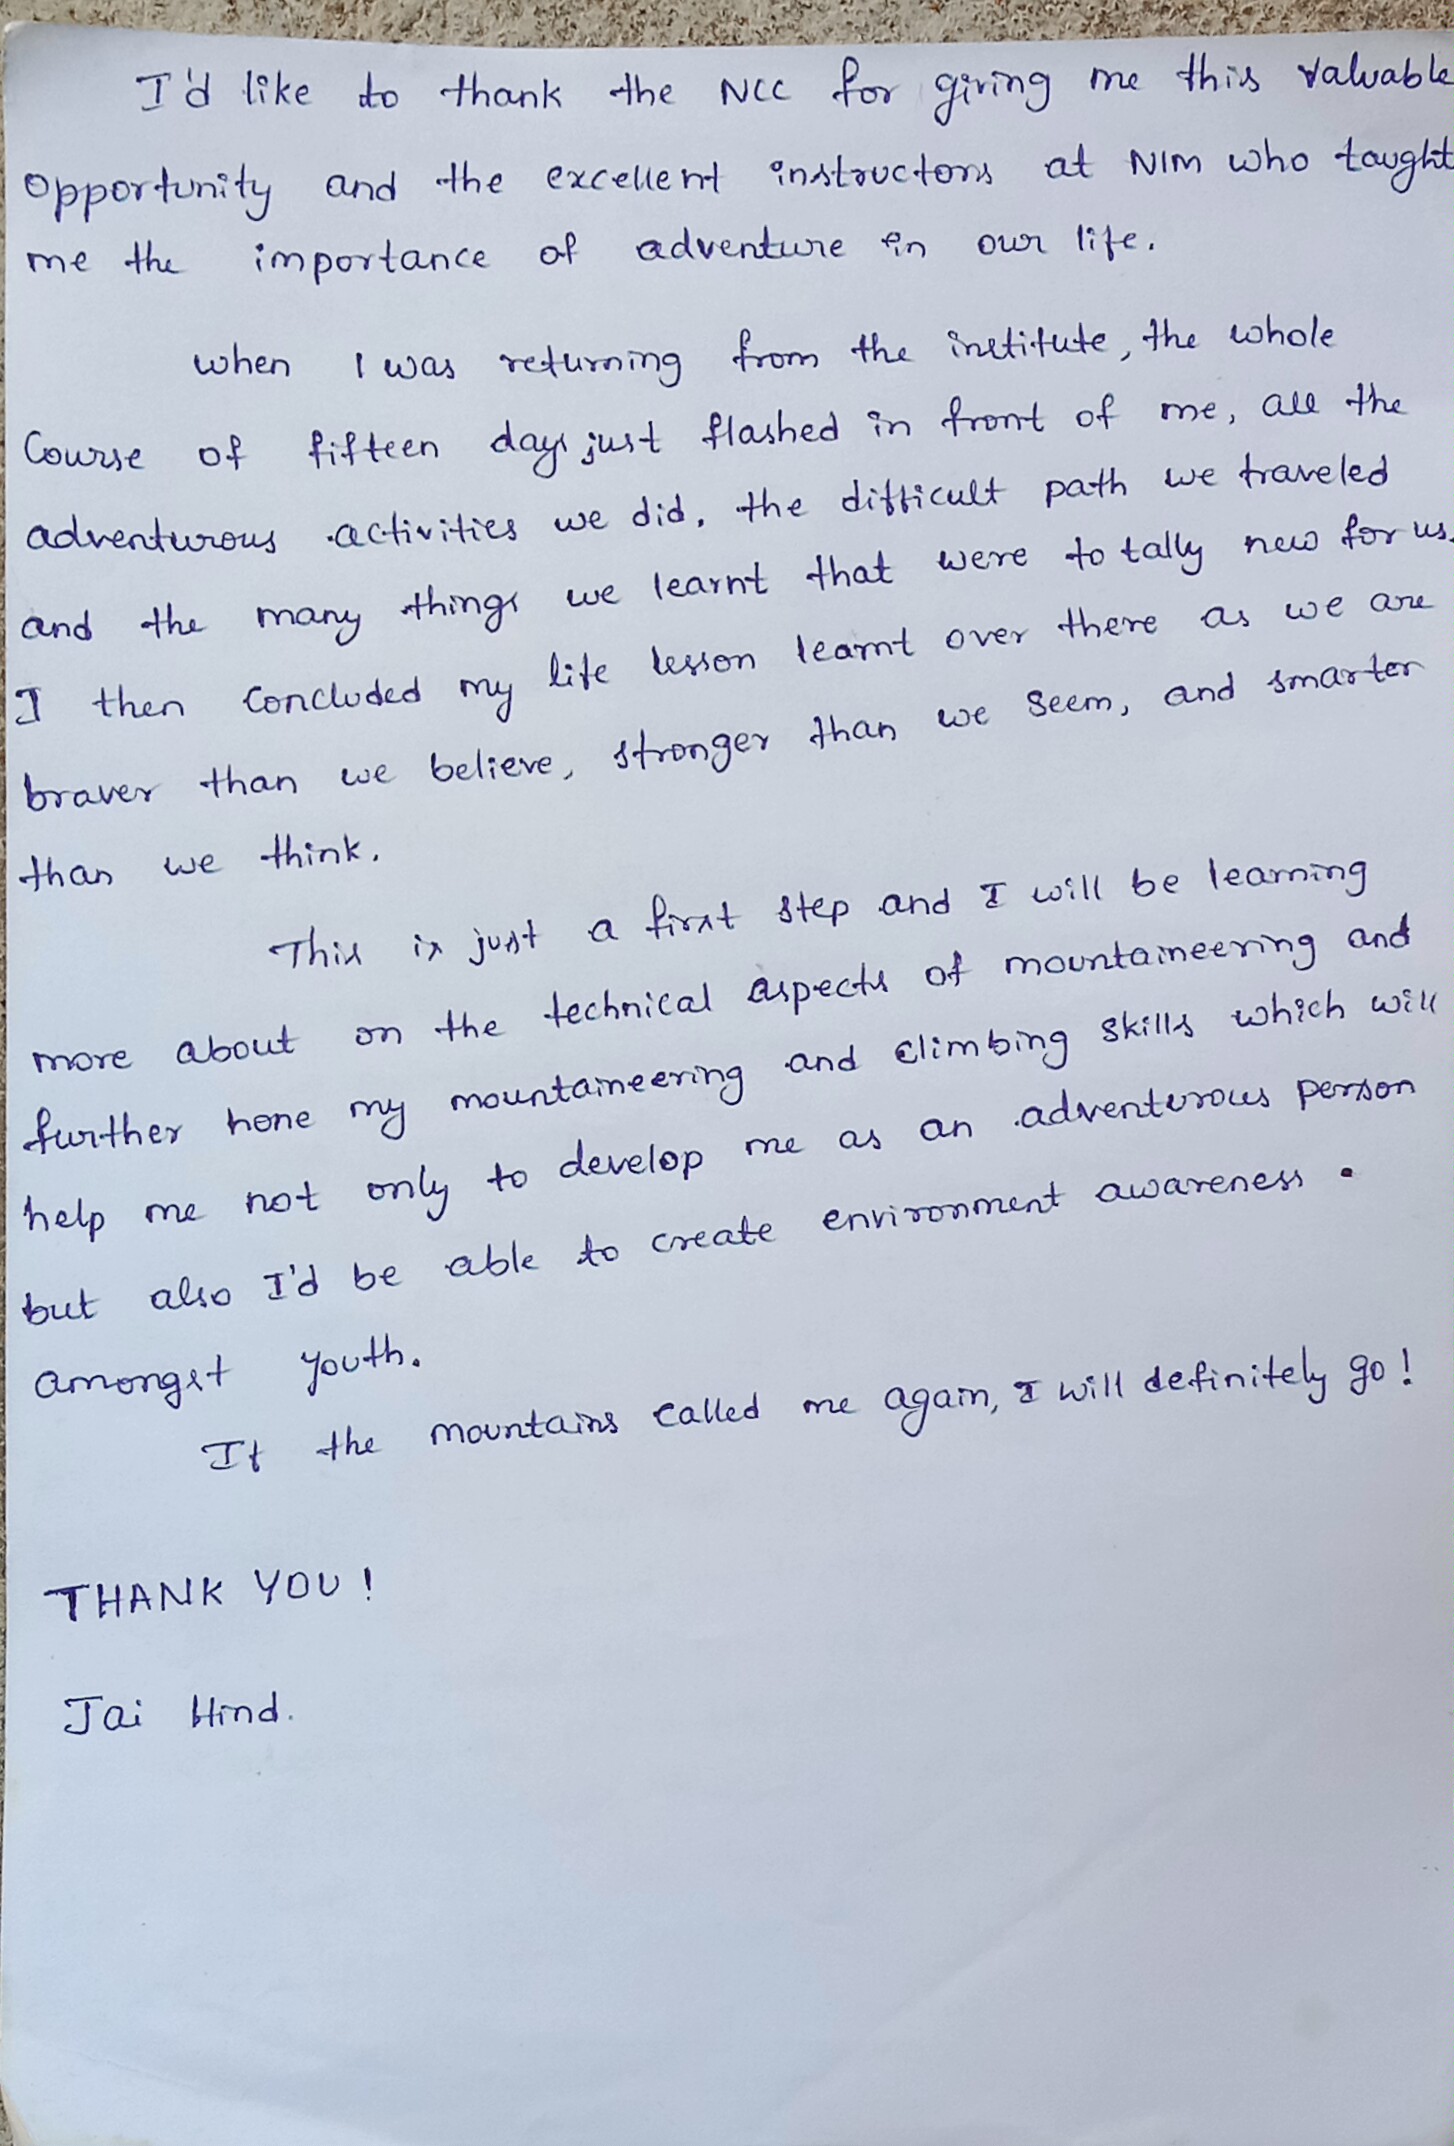 I'd like to thank the NCC for giving me this valuable
opportunity and the excellent instructors at NIM who taught
me the importance of adventure in our life.
When I was returning from the institute, the whole
Course of fifteen days just flashed in front of me, all the
adventurous activities we did, the difficult path we traveled
and the many things we learnt that were totally new for us.
I then concluded my life lesson learnt over there as we are
braver than we believe, stronger than we seem, and smarter
than we think.
This is just a first step and I will be learning
more about on the technical aspects of mountaineering and
further hone my mountaineering and climbing skills which will
help me not only to develop me as an adventurous person
but also I'd be able to create environment awareness.
amongst youth.
If the mountains called me again, I will definitely go!
THANK YOU!
Jai Hind.